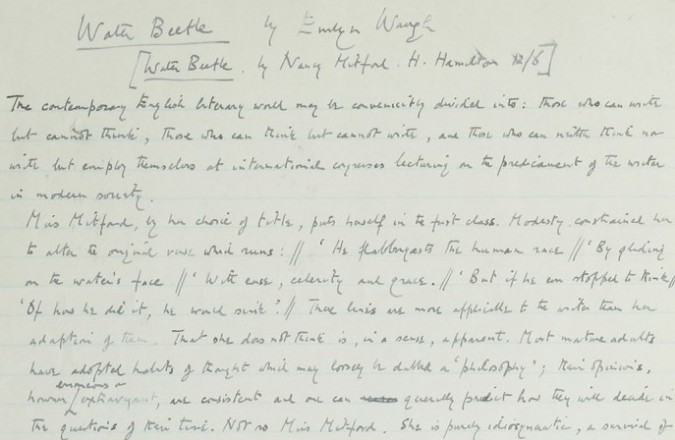 Water Beetle by Evelyn Waugh
[Water Beetle. by Nancy Mitford. H. Hamilton 12/6]
The contemporary English literary world may be conveniently divided into: those who can write
but cannot think, those who can think but cannot write, and those who can neither think nor
write but employ themselves at international congresses lecturing on the predicament of the writer
in modern society.
Miss Mitford, by her choice of title, puts herself in the first class. Modesty constrained her
to alter the original verse which runs: // 'He flabbergasts the human race // 'By gliding
on the water's face // 'With ease, celerity and grace. // 'But if he ever stopped to think //
'Of how he did it, he would sink'. // These lines are more applicable to the writer than her
adaption of them. That she does not think is, in a sense, apparent. Most mature adults
have adopted habits of thought which may loosely be dubbed a 'philosophy'; their opinions,
erroneous or
however extravagant, are consistent and one can generally predict how they will decide in
the questions of their time. Not so Miss Mitford. She is purely idiosyncratic, a survival of